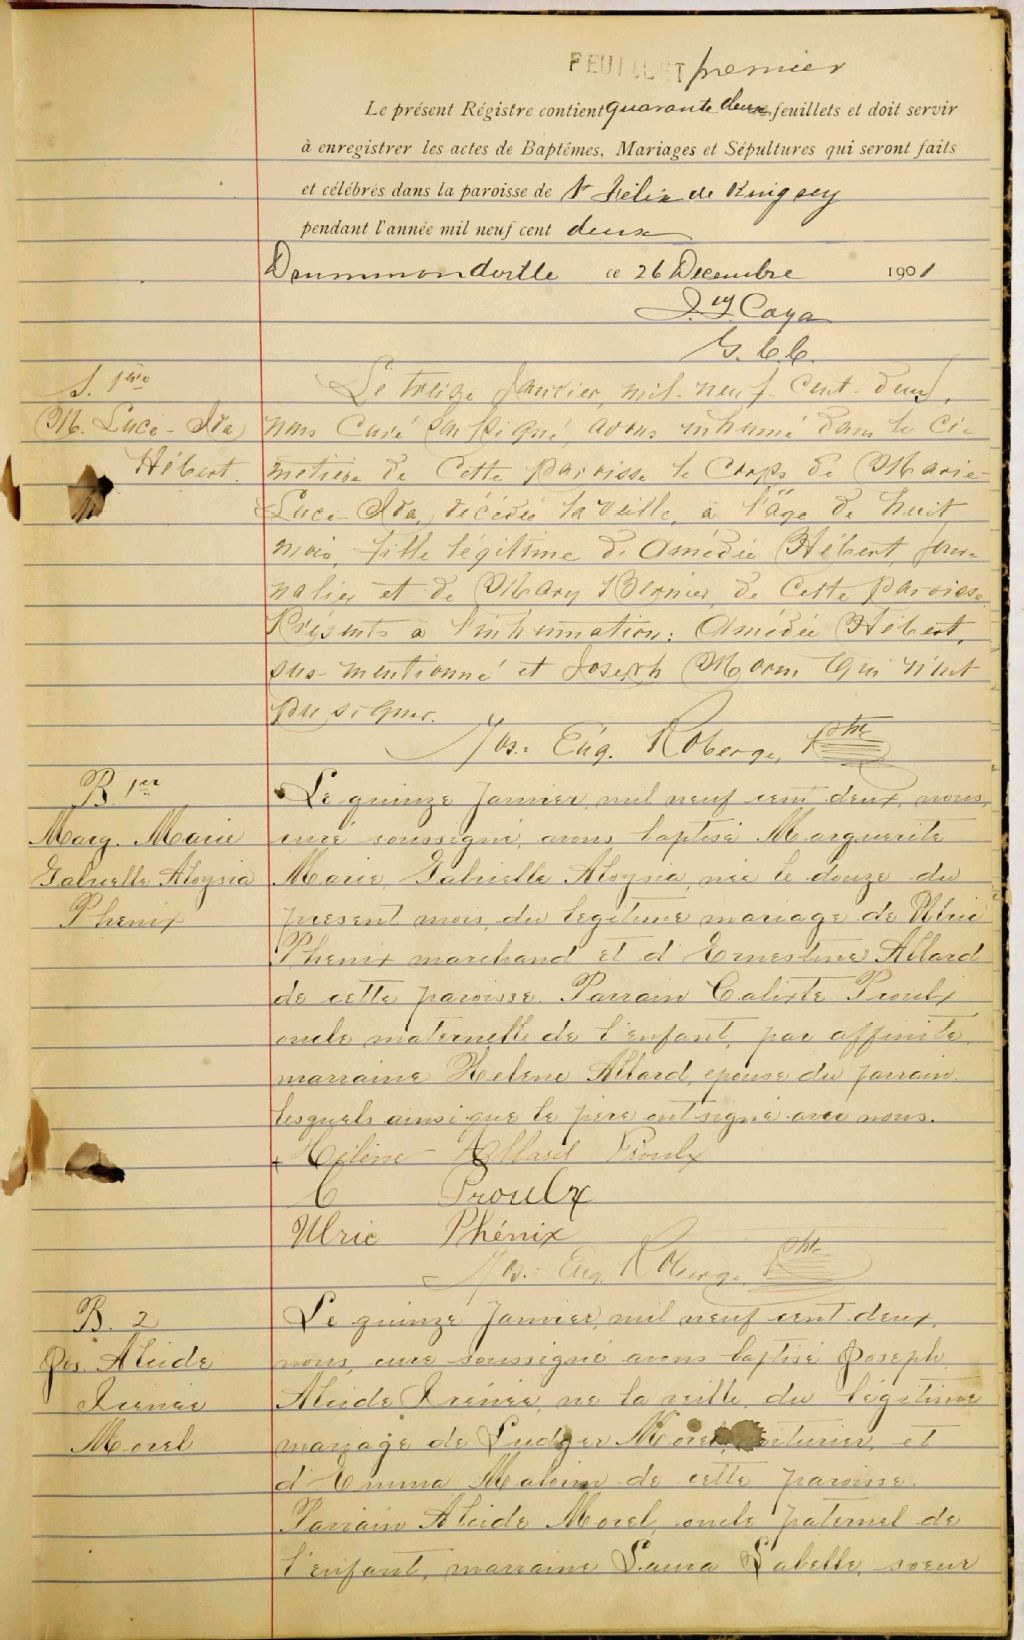 FEUILLET premier
Le présent Régistre contient quarante deux feuillets et doit servir
à enregistrer les actes de Baptêmes, Mariages et Sépultures qui seront faits
et célébrés dans la paroisse de St Félix de Kingsey
pendant l'année mil neuf cent deux
Drummondville ce 26 Decembre 1901
J. Caya
G. C. C.
S. 1ère
M. Luce-Ida
Hébert.
Le treize Janvier, mil-neuf-cent-deux,
nous Curé soussigné, avons inhumé dans le Ci-
metière de Cette paroisse le Corps de Marie-
Luce-Ida, décédée la veille, à l'âge de huit
mois, fille légitime de Amédée Hébert, Jour-
nalier et de Mary Bernier, de Cette paroisse.
Présents à l'inhumation: Amédée Hébert,
sus-mentionné et Joseph Morin qui n'ont
pu signer.
Jos. Eug. Roberge, Ptre
B. 1er
Marg. Marie
Gabrielle Aloysia
Phenix
Le quinze Janvier, mil neuf cent deux, nous,
curé soussigné, avons baptisé Marguerite
Marie, Gabrielle Aloysia, née le douze du
present mois, du legitime mariage de Ulric
Phenix marchand et d'Ernestine Allard
de cette paroisse. Parrain Calixte Proulx
oncle maternelle de l'enfant, par affinité,
marraine Helene Allard, epouse du parrain.
lesquels ainsi que le père ont signé avec nous.
Hélène Allard Proulx
C Proulx
Ulric Phénix
Jos. Eug. Roberge, Ptre
B. 2
Jos. Alcide
Irenée
Morel
Le quinze Janvier, mil neuf cent deux,
nous, curé soussigné avons baptisé Joseph
Alcide Irénée, né la veille, du légitime
mariage de Ludger Morel, voiturier, et
d'Emma Malouin de cette paroisse.
Parrain Alcide Morel, oncle paternel de
l'enfant, marraine Laura Labelle, soeur